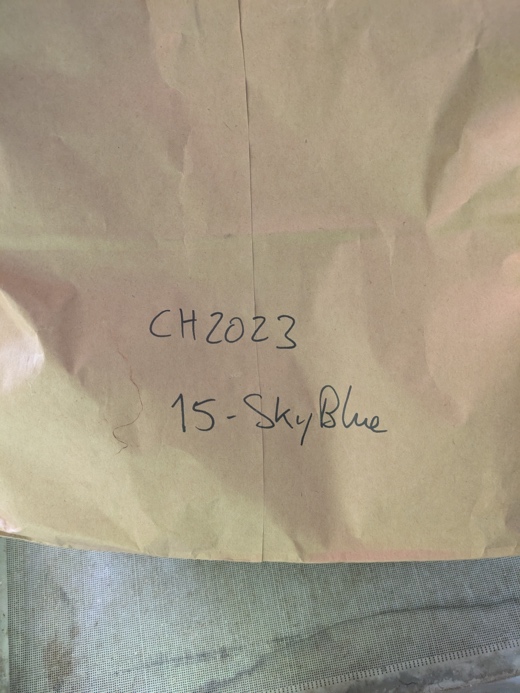 CH2023
15-SkyBlue